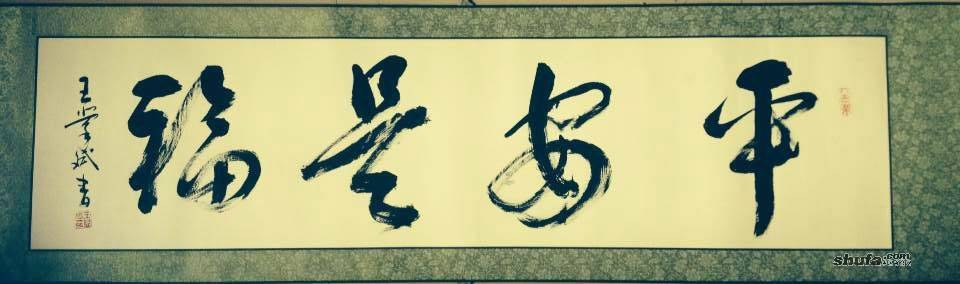 平安是福
王学斌书
shufa.com